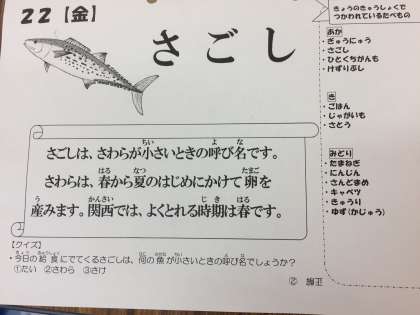 22【金】
さごし
さごしは、さわらが小さいときの呼び名です。
さわらは、春から夏のはじめにかけて卵を
産みます。関西では、よくとれる時期は春です。
【クイズ】
・今日の給食にでてくるさごしは、何の魚が小さいときの呼び名でしょうか？
①たい ②さわら ③さけ
きょうのきゅうしょくで
つかわれているたべもの
あか
・ぎゅうにゅう
・さごし
・ひとくちがんも
・けずりぶし
き
・ごはん
・じゃがいも
・さとう
みどり
・たまねぎ
・にんじん
・さんどまめ
・キャベツ
・きゅうり
・ゆず(かじゅう)